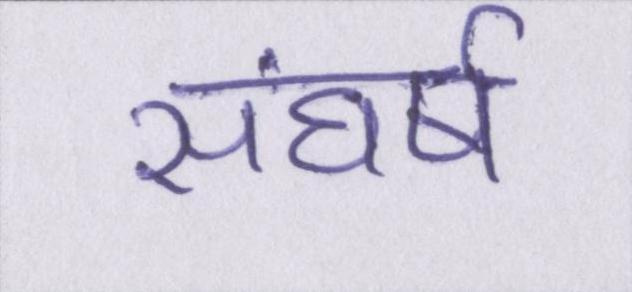 संघर्ष